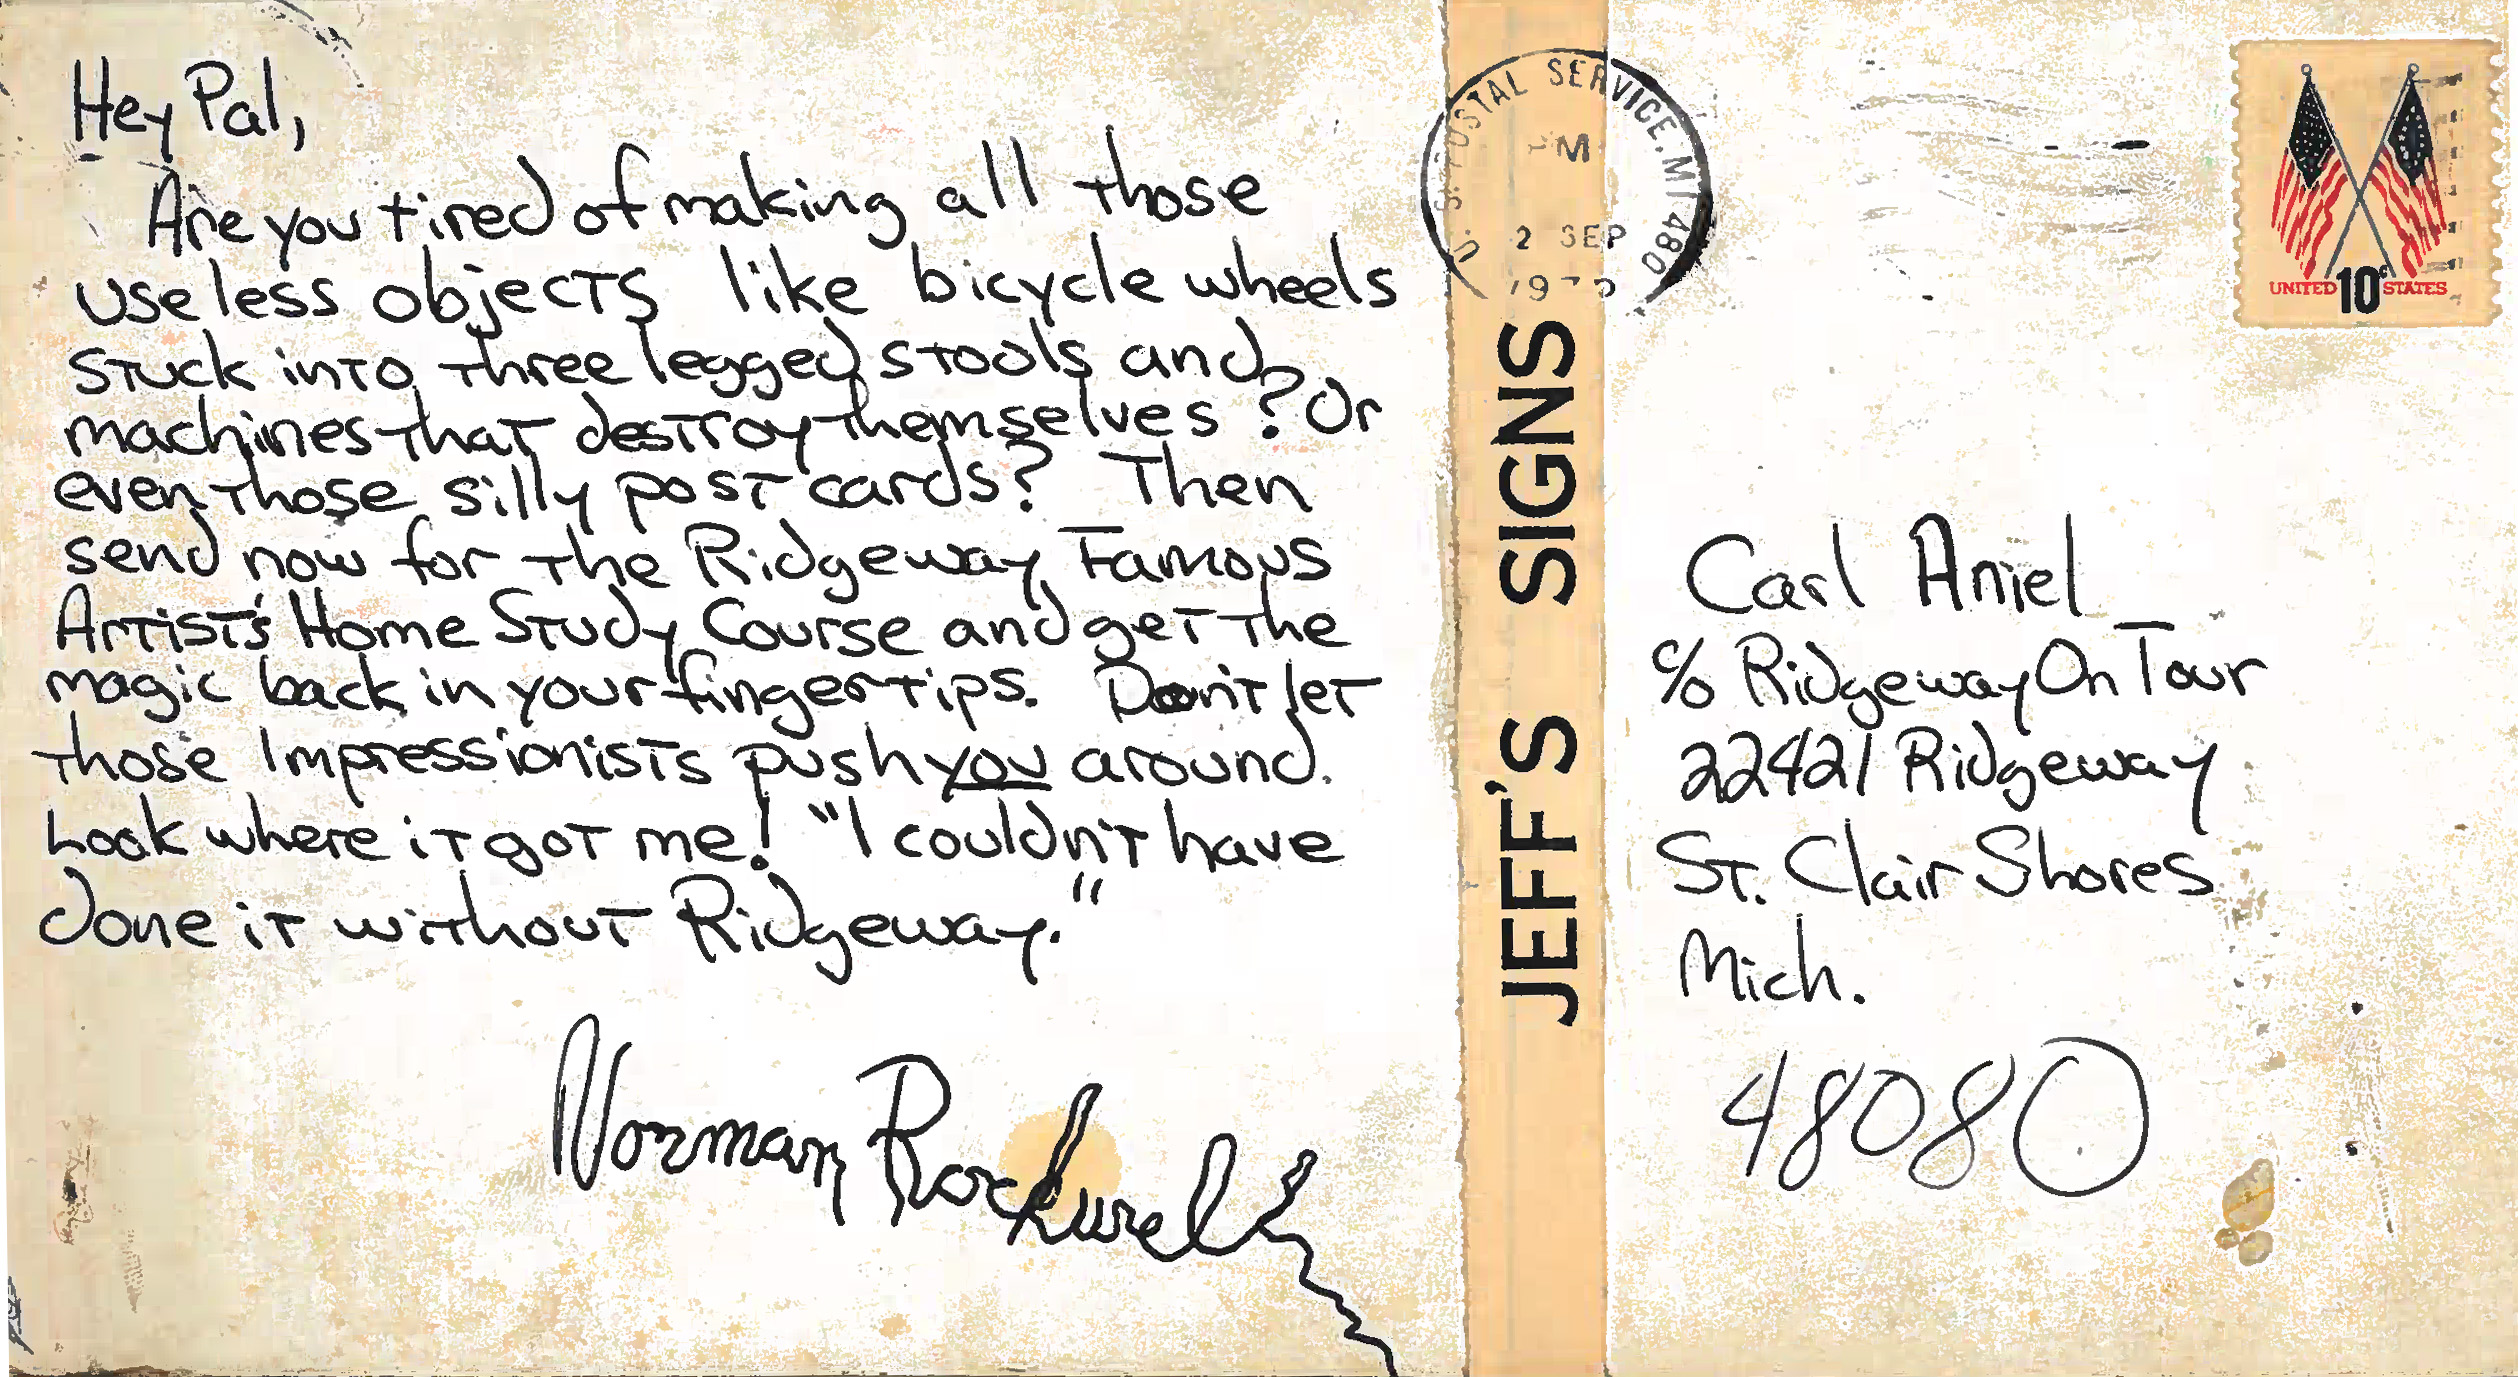 Hey Pal,
Are you tired of making all those
useless objects like bicycle wheels
stuck into three legged stools and
machines that destroy themselves? Or
even those silly post cards? Then
send now for the Ridgeway Famous
Artist's Home Study Course and get the
magic back in your fingertips. Don't let
those Impressionists push you around.
Look where it got me! "I couldn't have
done it without Ridgeway."
Norman Rockwell
JEFF'S SIGNS
U. S. POSTAL SERVICE. MI 480
M
2 SEP
UNITED 10c STATES
Carl Aniel
c/o Ridgeway On Tour
22421 Ridgeway
St. Clair Shores
Mich.
48080